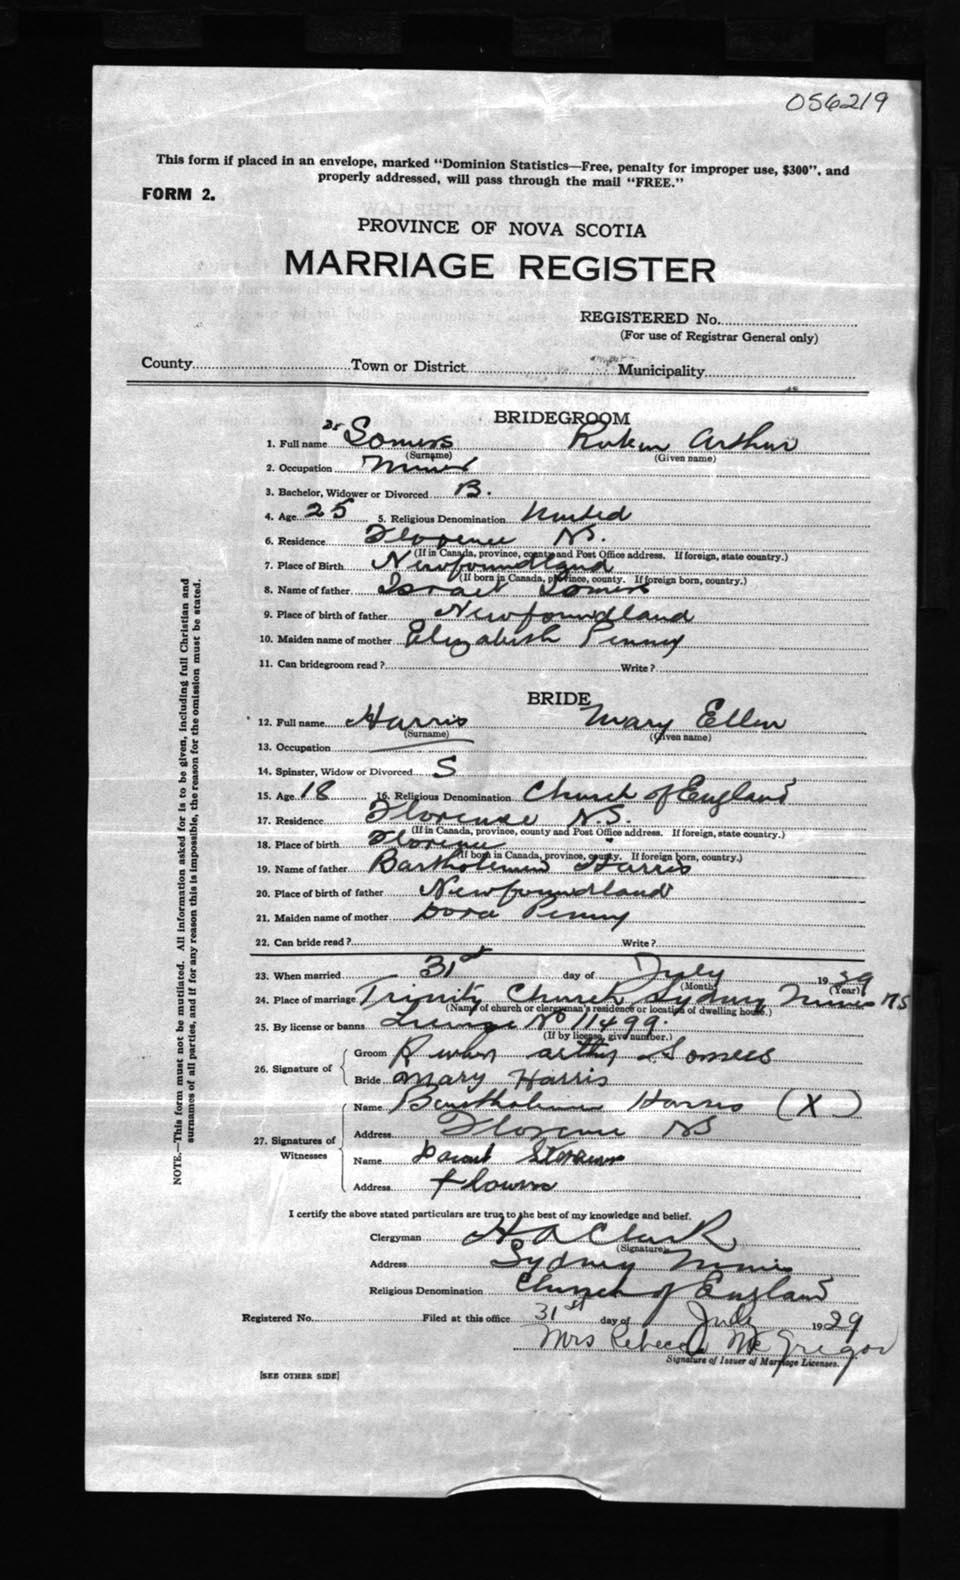 056219
This form if placed in an envelope, marked "Dominion Statistics—Free, penalty for improper use, $300", and
properly addressed, will pass through the mail "FREE."
FORM 2.
PROVINCE OF NOVA SCOTIA
MARRIAGE REGISTER
REGISTERED No.
(For use of Registrar General only)
County Town or District Municipality
BRIDEGROOM
1. Full name Somers Arthur
(Surname) (Given name)
2. Occupation Miner
3. Bachelor, Widower or Divorced B.
4. Age 25 5. Religious Denomination United
6. Residence Florence N.S.
(If in Canada, province, county and Post Office address. If foreign, state country.)
7. Place of Birth Newfoundland
(If born in Canada, province, county. If foreign born, country.)
8. Name of father Israel Somers
9. Place of birth of father Newfoundland
10. Maiden name of mother Elizabeth Penny
11. Can bridegroom read? Write?
BRIDE
12. Full name Harris Mary Ellen
(Surname) (Given name)
13. Occupation
14. Spinster, Widow or Divorced S
15. Age 18 16. Religious Denomination Church of England
17. Residence Florence N.S.
(If in Canada, province, county and Post Office address. If foreign, state country.)
18. Place of birth Florence
(If born in Canada, province, county. If foreign born, country.)
19. Name of father Bartholomew Harris
20. Place of birth of father Newfoundland
21. Maiden name of mother Dora Penny
22. Can bride read? Write?
23. When married 31st day of July 1929
(Month) (Year)
24. Place of marriage Trinity Church Sydney Mines NS
(Name of church or clergyman's residence or location of dwelling house.)
25. By license or banns License No 11499.
(If by license, give number.)
26. Signature of
Groom Arthur Somers
Bride Mary Harris
27. Signatures of Witnesses
Name Bartholomew Harris (X)
Address Florence NS
Name
Address
I certify the above stated particulars are true to the best of my knowledge and belief.
Clergyman H A Clark
(Signature)
Address Sydney Mines
Religious Denomination Church of England
Registered No. Filed at this office 31st day of July 1929
Mrs Rebecca McGregor
Signature of Issuer of Marriage Licenses.
[SEE OTHER SIDE]
NOTE.—This form must not be mutilated. All information asked for is to be given, including full Christian and
surnames of all parties, and if for any reason this is impossible, the reason for the omission must be stated.